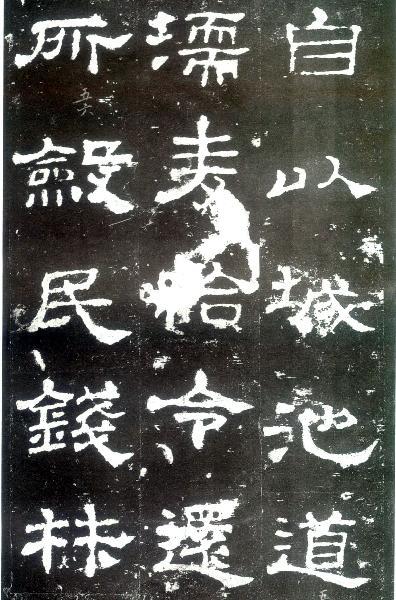 自以城池道
壖麥給令還
所斂民錢材